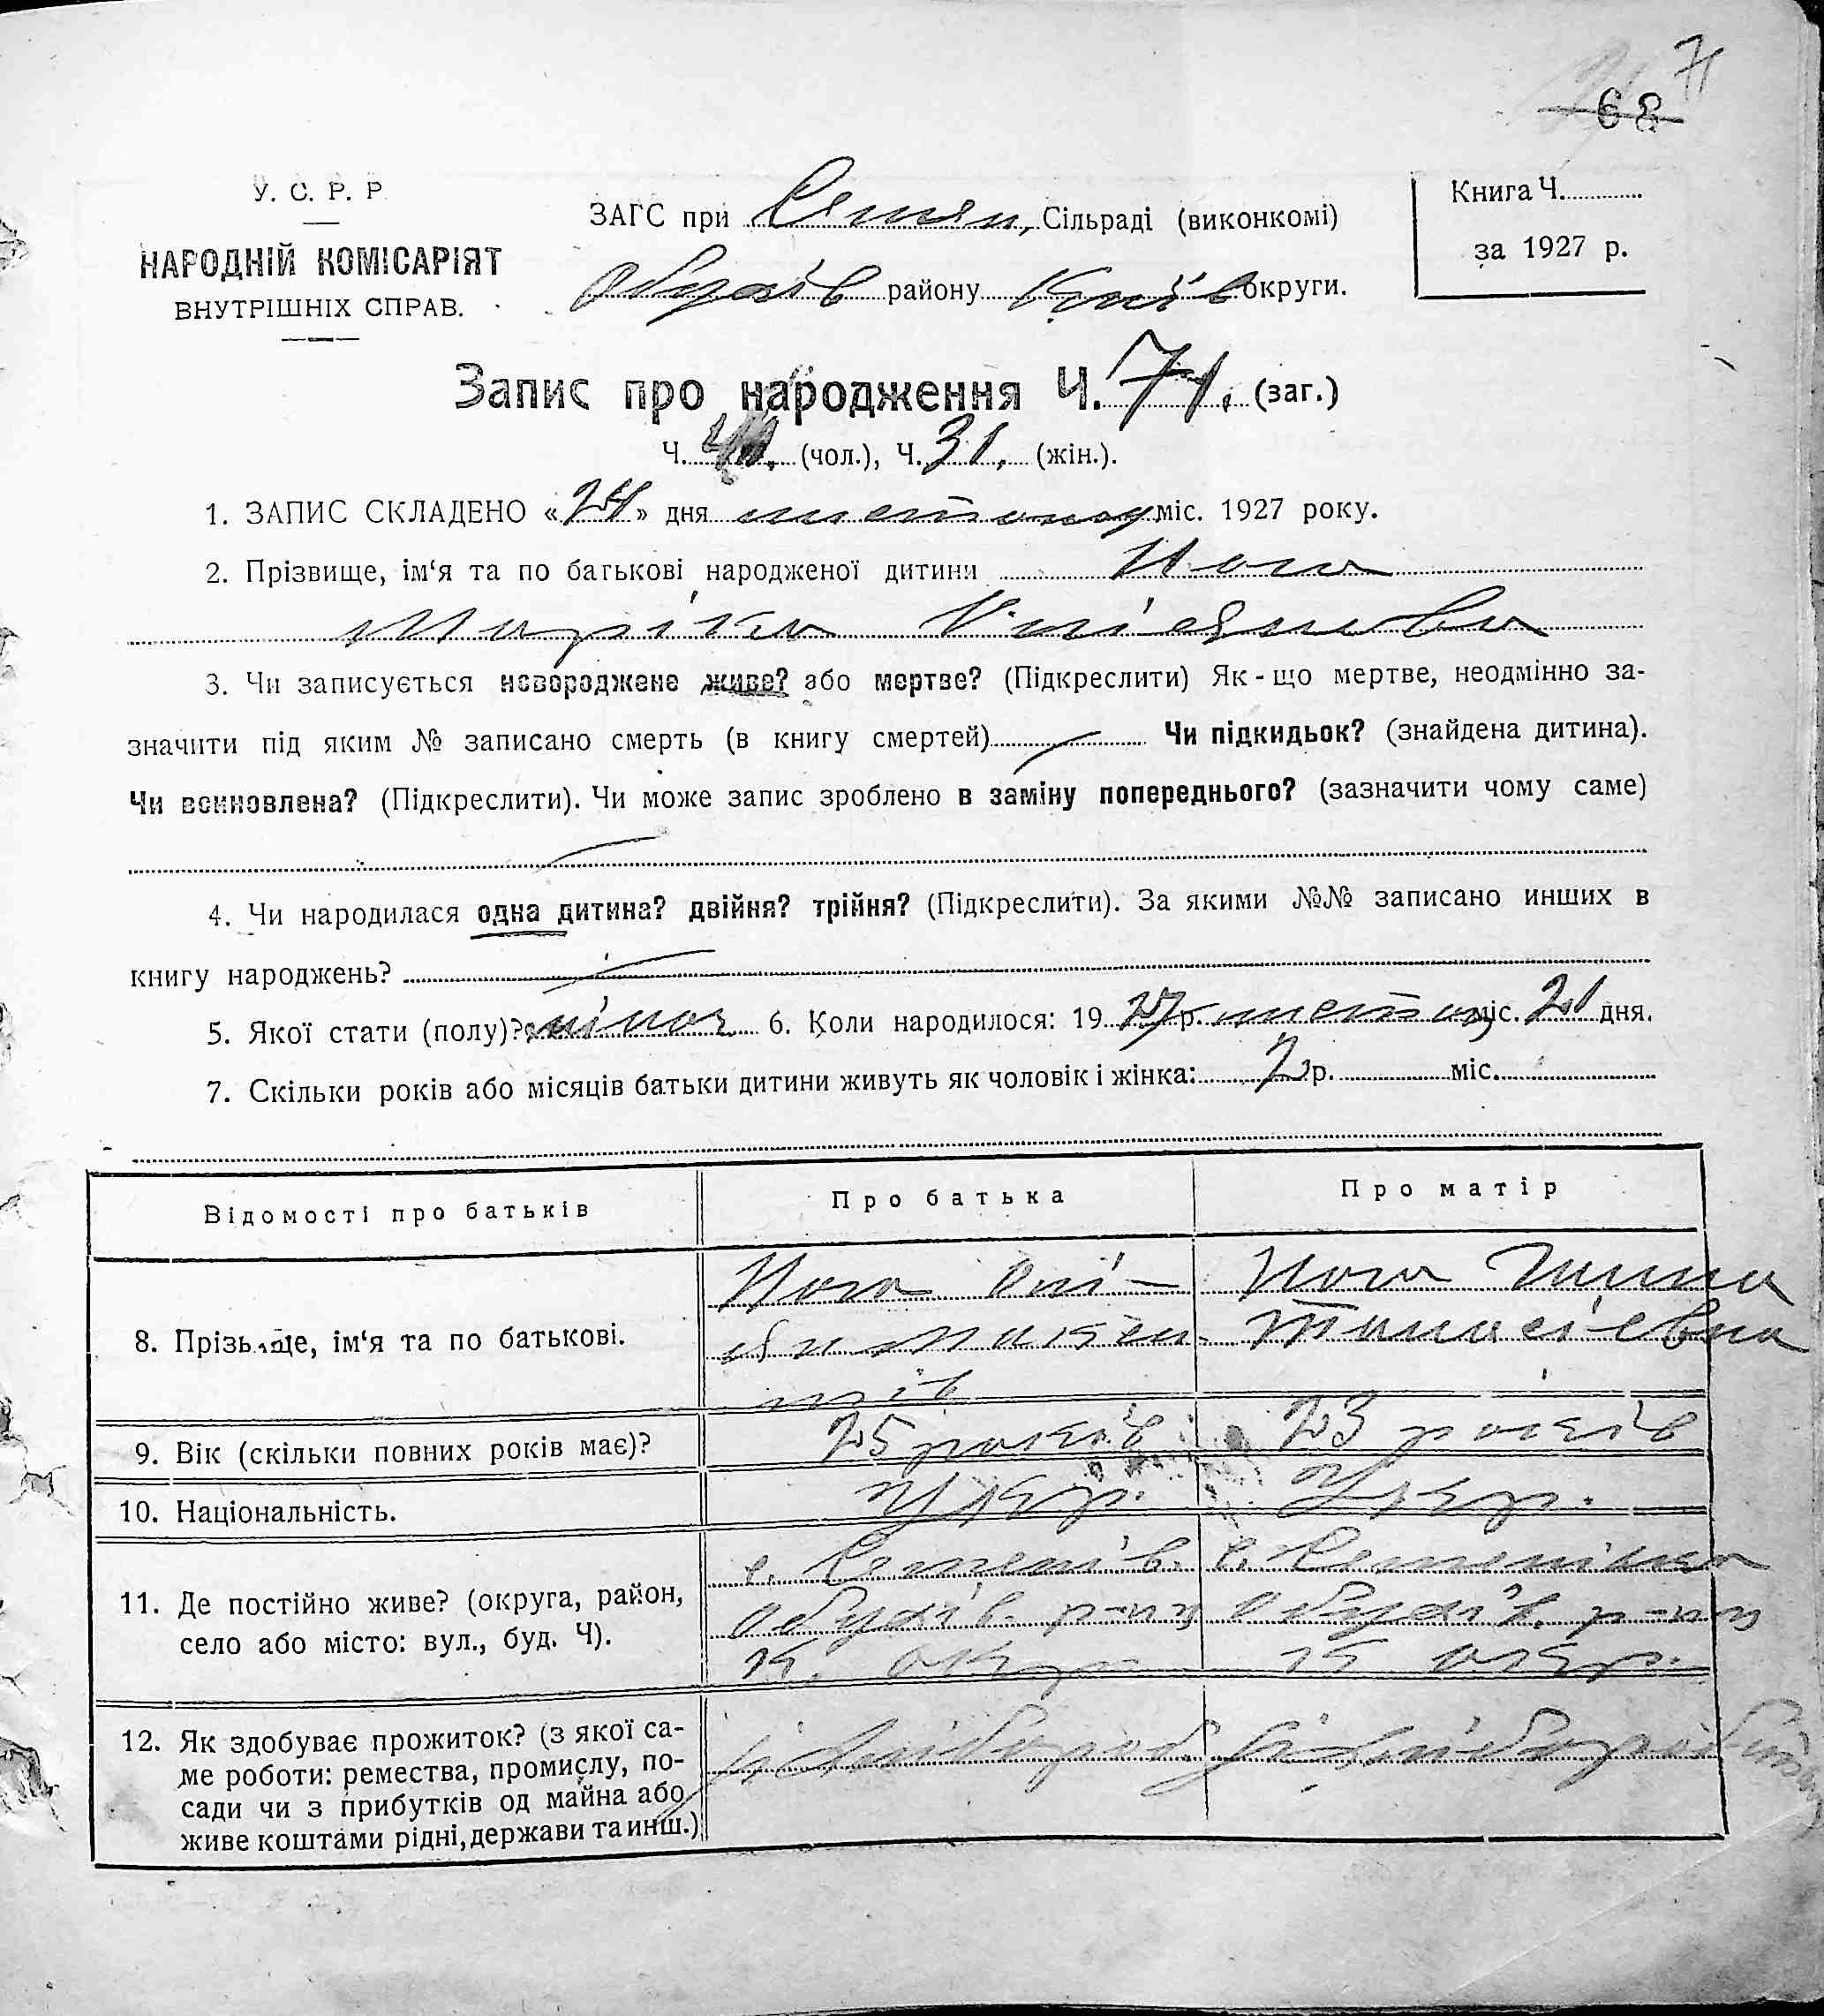 71
68
У. С. Р. Р.
НАРОДНІЙ КОМІСАРІЯТ
ВНУТРІШНІХ СПРАВ.
ЗАГС при Семен, Сільраді (виконкомі)
Обухів району Київ округи.
Книга Ч.
за 1927 р.
Запис про народження Ч. 71, (заг.)
Ч. (чол.), Ч. 31, (жін.).
1. ЗАПИС СКЛАДЕНО «24» дня листопад міс. 1927 року.
2. Прізвище, ім‘я та по батькові народженої дитини Нога
Марійка
3. Чи записується новороджене живе? або мертве? (Підкреслити) Як-що мертве, неодмінно за-
значити під яким № записано смерть (в книгу смертей) Чи підкидьок? (знайдена дитина).
Чи всиновлена? (Підкреслити). Чи може запис зроблено в заміну попереднього? (зазначити чому саме)
4. Чи народилася одна дитина? двійня? трійня? (Підкреслити). За якими №№ записано инших в
книгу народжень?
5. Якої стати (полу)? жіноч 6. Коли народилося: 19 27 р. листопад міс. 21 дня.
7. Скільки років або місяців батьки дитини живуть як чоловік і жінка: 2 р. міс.
Відомості про батьків Про батька Про матір
8. Прізвище, ім‘я та по батькові.
Нога Нога
Танасієвна
9. Вік (скільки повних років має)? 25 років 23 років
10. Національність. Укр. Укр.
11. Де постійно живе? (округа, район,
село або місто: вул., буд. Ч).
с. Семенів. с. Семенівка
Обухів. р-ну Обухів. р-ну
К. окр. К окр.
12. Як здобуває прожиток? (з якої са-
ме роботи: ремества, промислу, по-
сади чи з прибутків од майна або
живе коштами рідні, держави та инш.)